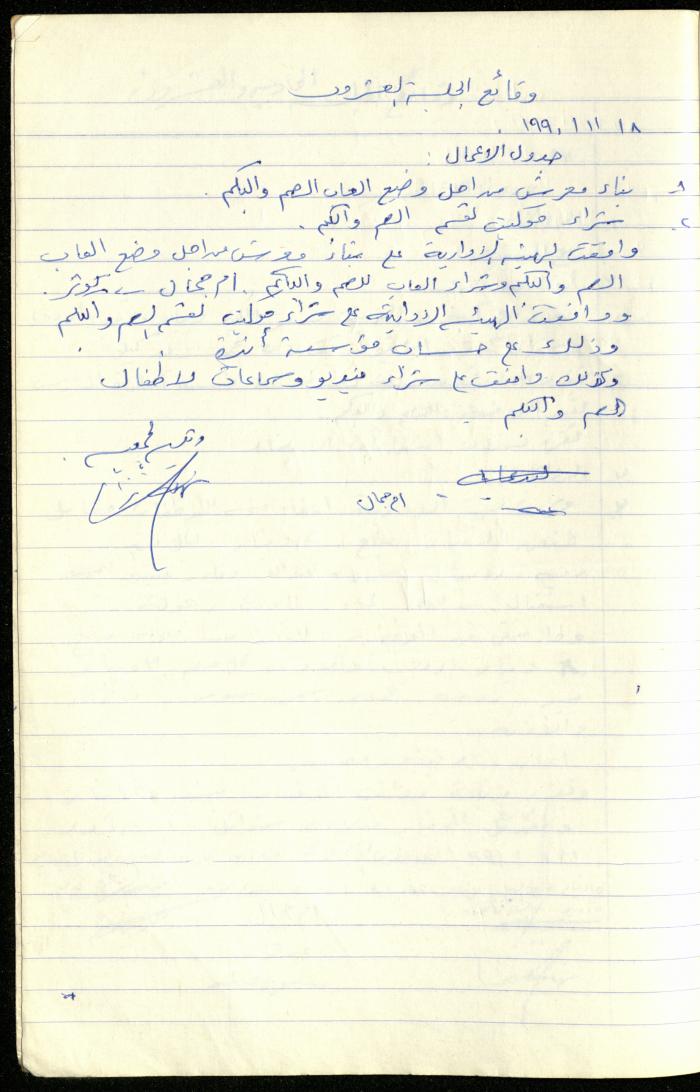 وقائع الجلسة العشرون
١٨ / ١١ / ١٩٩٠ .
جدول الاعمال :
١. بناء معرش من اجل وضع العاب الصم والبكم .
٢. شراء موكيت لقسم الصم والبكم .
وافقت الهيئة الادارية على بناء معرش من اجل وضع العاب
الصم والبكم وشراء العاب للصم والبكم . ام جمال
ووافقت الهيئة الادارية على شراء موكيت لقسم الصم والبكم
وذلك على حساب مؤسسة أنيرا .
وكذلك وافقت على شراء فيديو وسماعات لاطفال
الصم والبكم
ام جمال